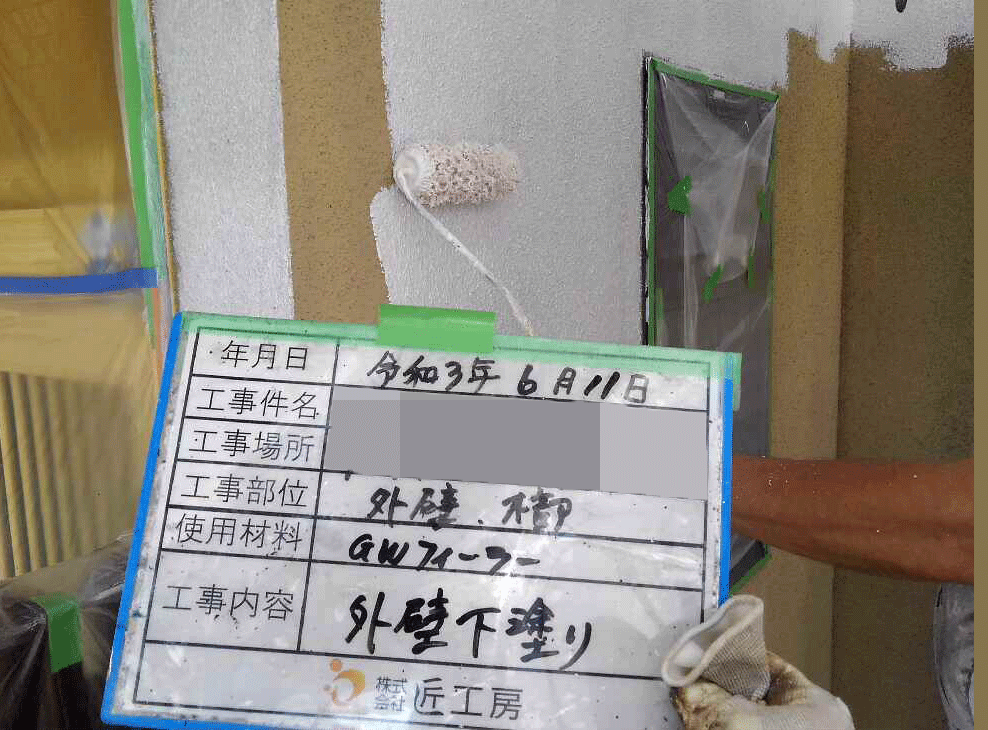 年月日 令和3年 6月11日
工事件名
工事場所
工事部位 外壁、木部
使用材料 GWフィーラー
工事内容 外壁下塗り
株式会社 匠工房